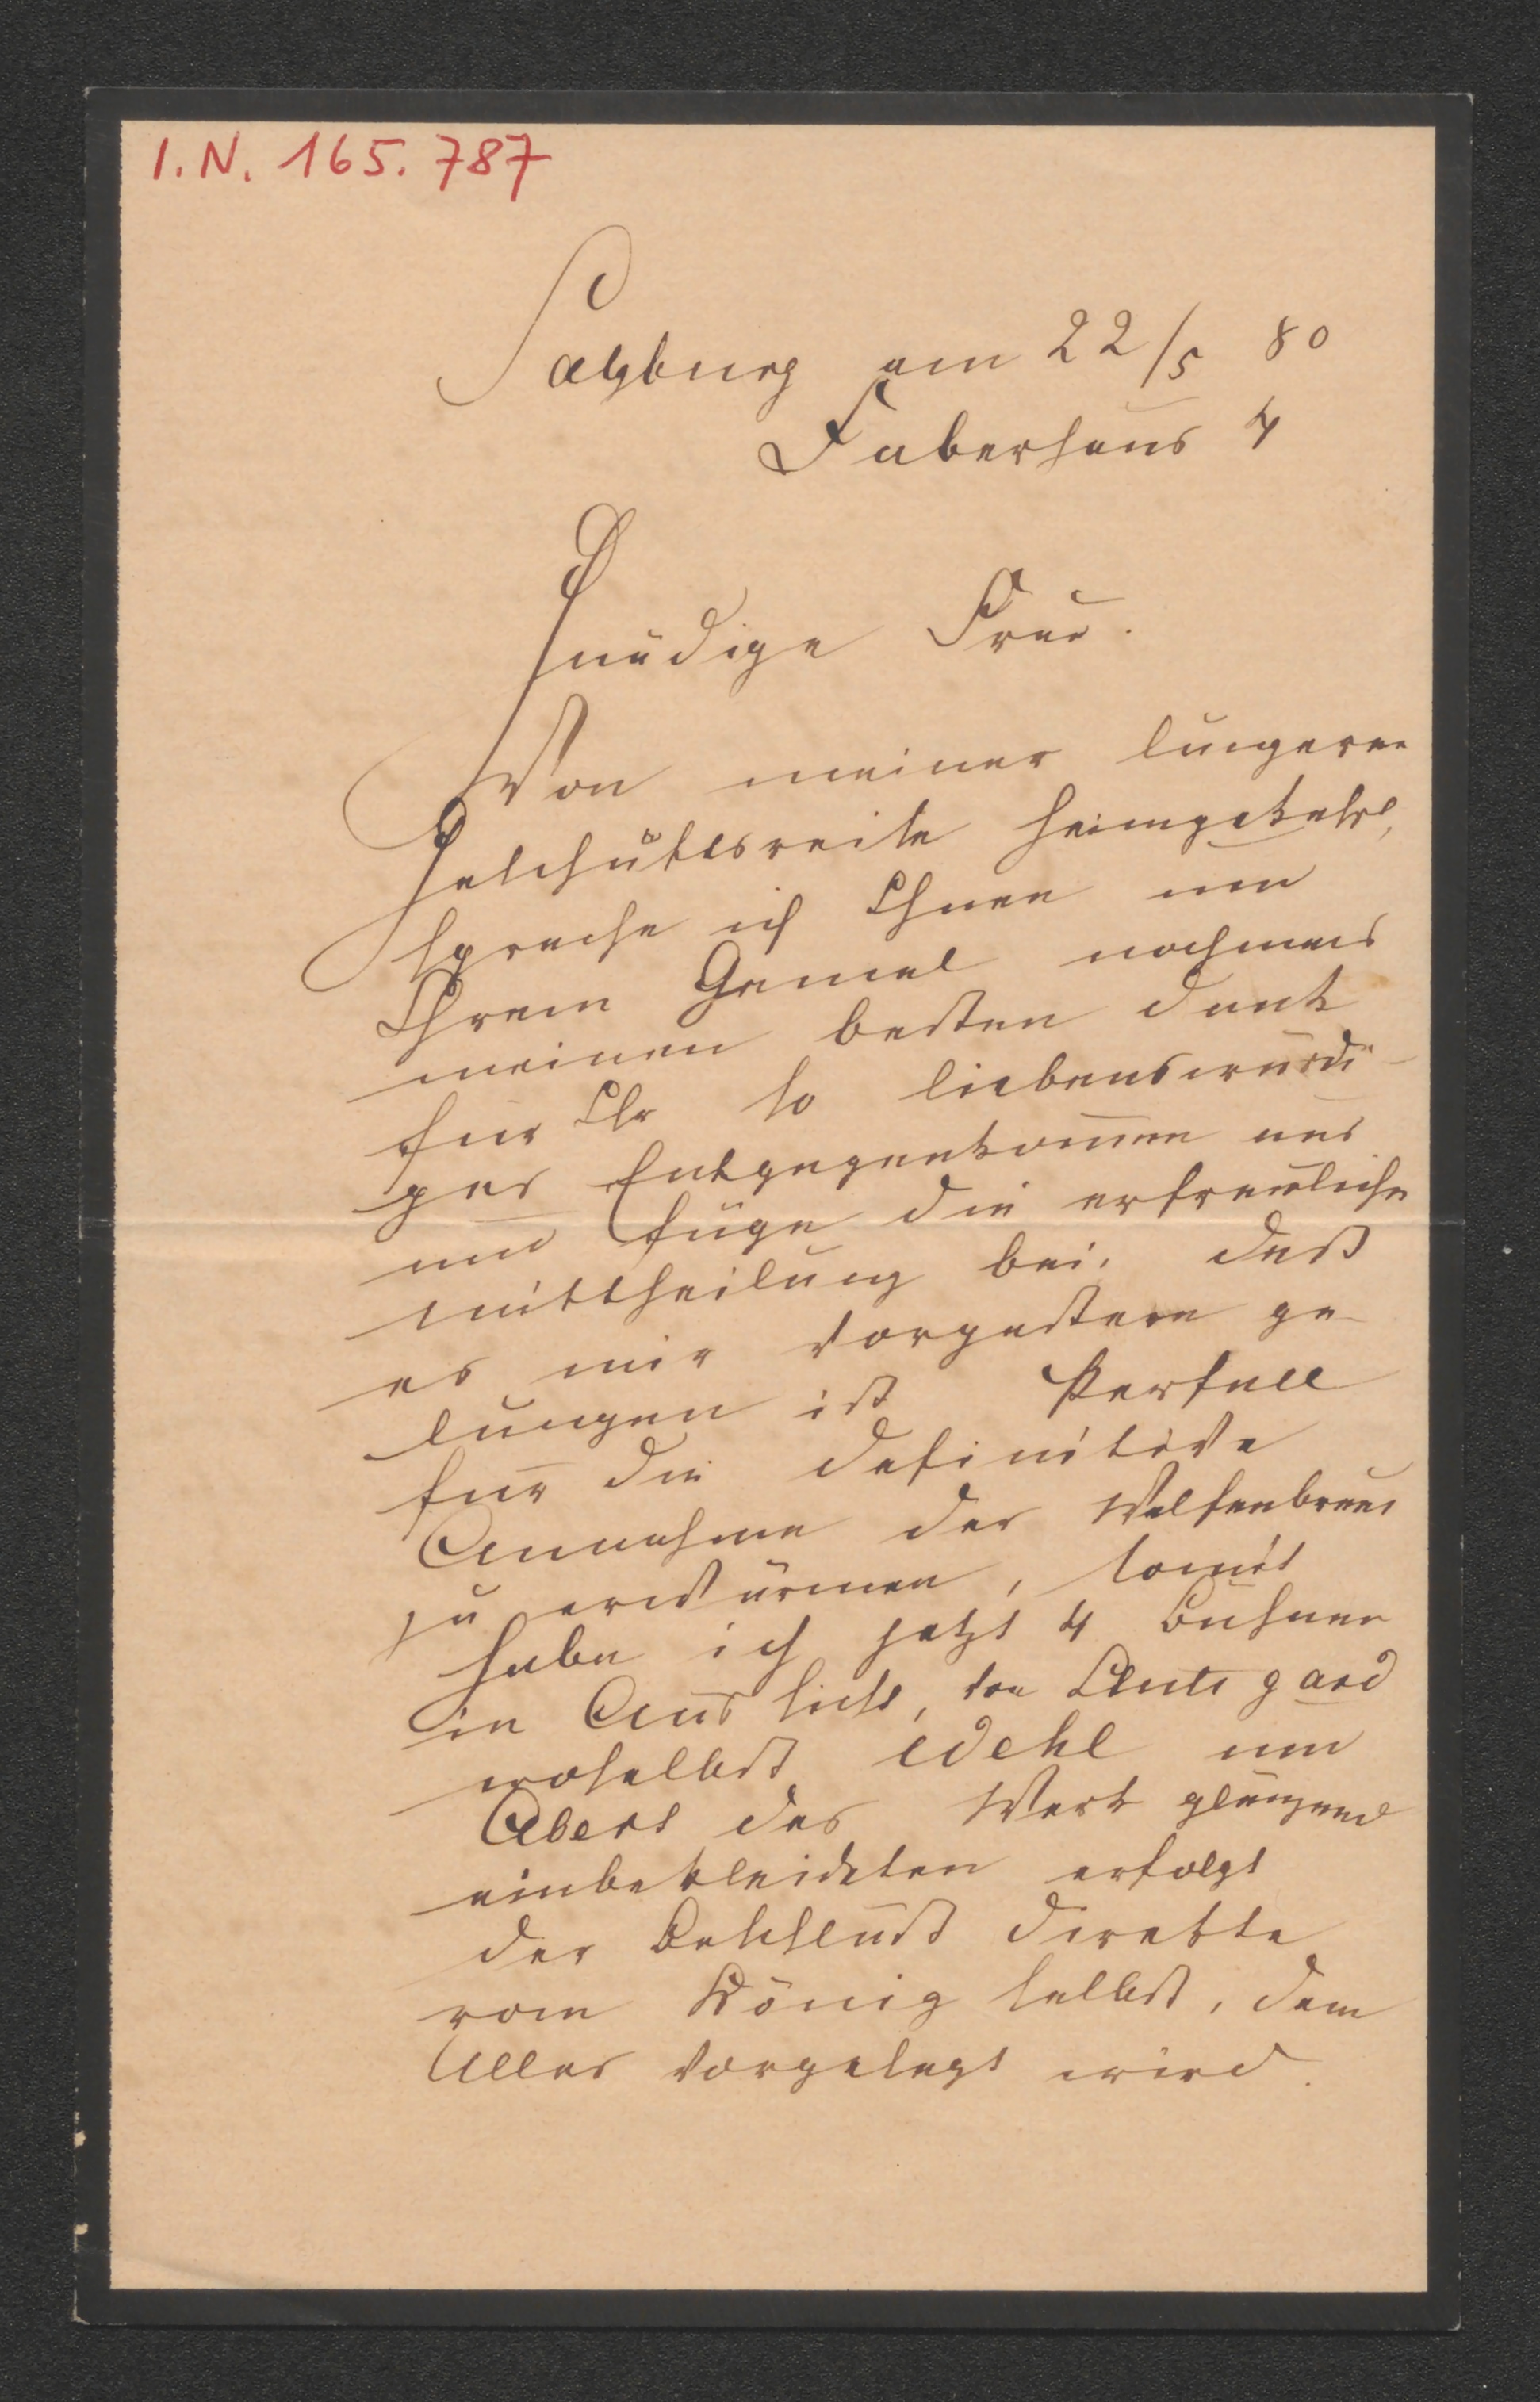 I.N. 165.787
Salzburg am 22/5 80
Faberhaus 4
Gnädige Frau.
Von meiner längeren
Geschäftsreise heimgekehrt,
spreche ich Ihnen und
Ihrem Gemal nochmals
meinen besten Dank
für Ihr so liebenswürdi-
ges Entgegenkommen aus
und füge die erfreuliche
Mittheilung bei, daß
es mir vorgestern ge-
lungen ist Perfall
für die definitive
Annahme der Welfenbraut
zu erwärmen, somit
habe ich jetzt 4 Bühnen
in Aussicht, von Stuttgard
woselbst Wehl und
Abert das Werk glänzend
einbekleideten erfolgt
der Beschluß direkte
vom König selbst, dem
Alles vorgelegt wird.